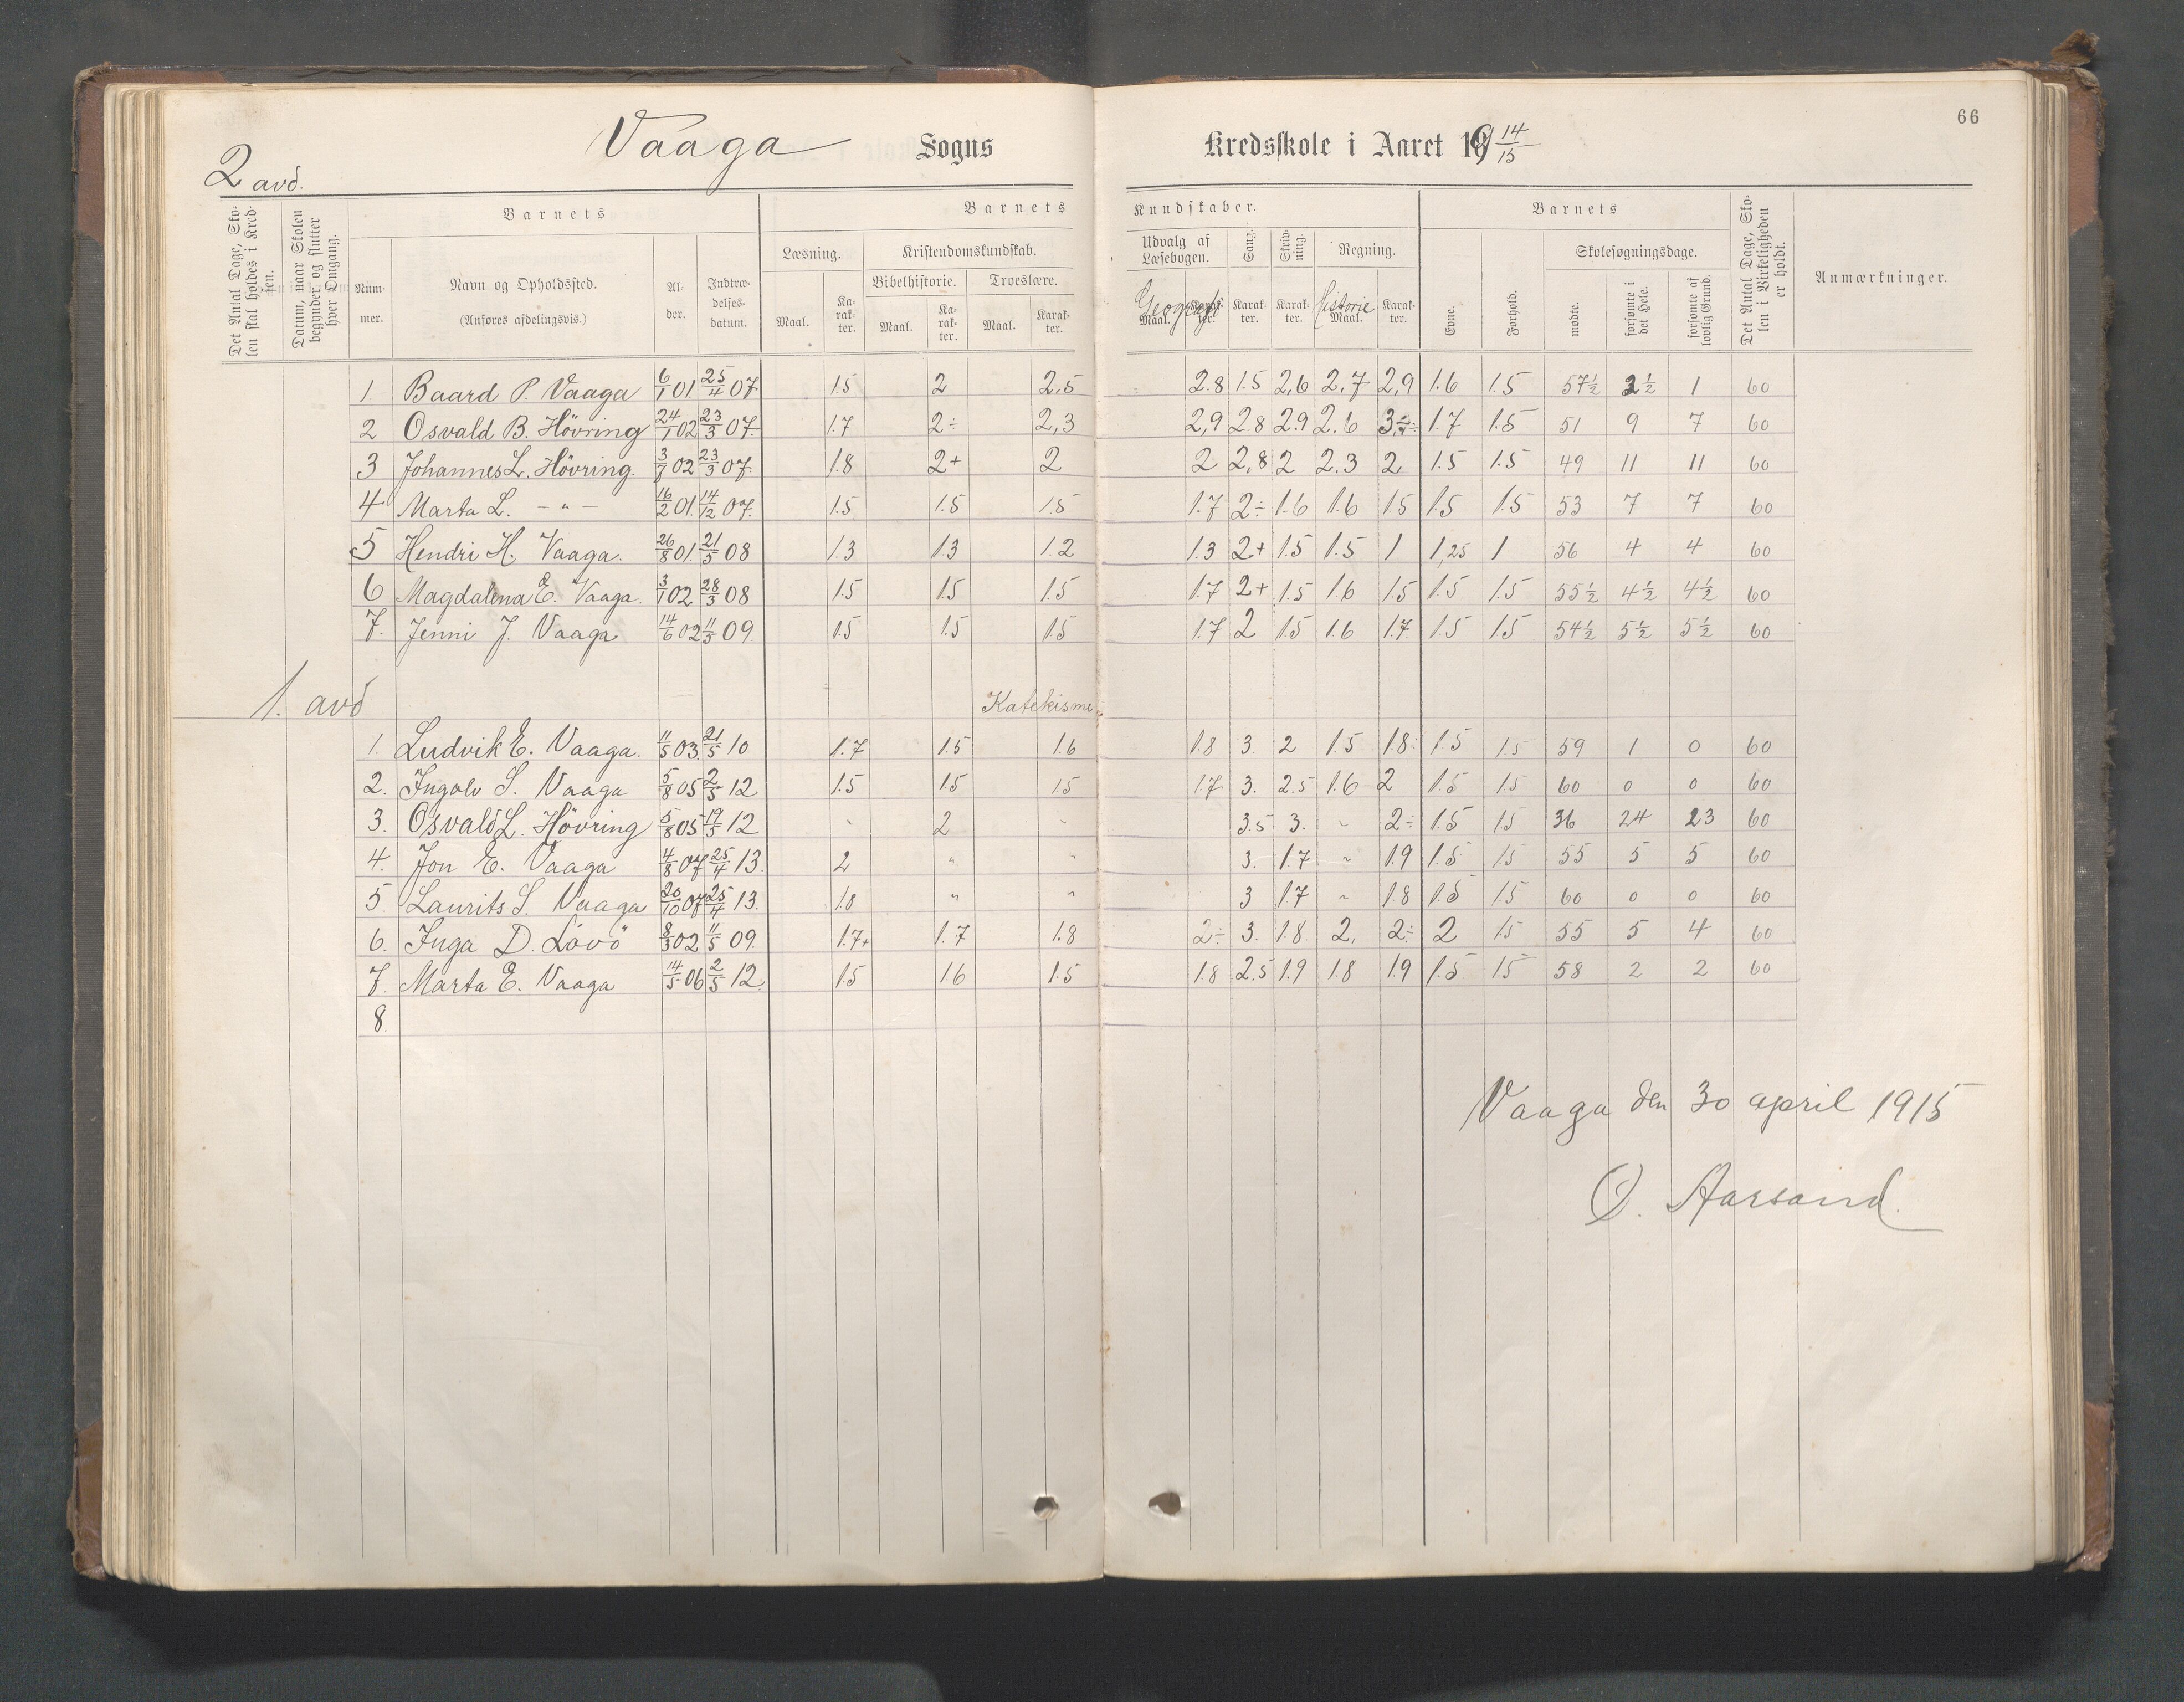 66
Vaaga Sogns Kredsskole i Aaret 19 14/15
2 avd.
Det Antal Dage, Skolen skal holdes i Kredsen.
Datum, naar Skolen begynder og slutter hver Omgang.
Barnets
Nummer.
Navn og Opholdssted.
(Anføres afdelingsvis.)
Alder.
Indtrædelsesdatum.
Barnets Kundskaber.
Læsning.
Maal. Karakter.
Kristendomskundskab.
Bibelhistorie. Troeslære.
Maal. Karakter. Maal. Karakter.
Udvalg af Læsebogen.
Geografi
Maal. Karakter.
Sang. Karakter.
Skrivning. Karakter.
Regning.
Historie
Maal. Karakter.
Barnets
Evne. Forhold.
Skolesøgningsdage.
mødte. forsømte i det Hele. forsømte af lovlig Grund.
Det Antal Dage, Skolen i Virkeligheden er holdt.
Anmærkninger.
1. Baard P. Vaaga 6/1 01 25/4 07. 1.5 2 2,5 2.8 1.5 2,6 2.7 2,9 1.6 1.5 57½ 2½ 1 60
2 Osvald B. Hövring 24/1 02 23/3 07. 1.7 2÷ 2,3 2,9 2.8 2.9 2.6 3÷ 1.7 1.5 51 9 7 60
3 Johannes L. Hövring. 3/7 02 23/3 07. 1.8 2+ 2 2 2,8 2 2.3 2 1.5 1.5 49 11 11 60
4 Marta L. - " - 16/2 01. 14/12 07. 1.5 1.5 1.5 1.7 2÷ 1.6 1.6 1.5 1.5 1.5 53 7 7 60
5 Hendri H. Vaaga. 26/8 01. 21/5 08 1.3 1.3 1.2 1.3 2+ 1.5 1.5 1 1,25 1 56 4 4 60
6 Magdalena E. Vaaga. 3/1 02 28/3 08 1.5 1.5 1.5 1.7 2+ 1.5 1.6 1.5 1.5 1.5 55½ 4½ 4½ 60
7. Jenni J. Vaaga 14/6 02 11/5 09. 1.5 1.5 1.5 1.7 2 1.5 1.6 1.7. 1.5 1.5 54½ 5½ 5½ 60
1. avd Katekisme
1. Ludvik E. Vaaga. 11/5 03. 21/5 10 1.7 1.5 1.6 1.8 3. 2 1.5 1.8÷ 1.5 1.5 59 1 0 60
2. Ingolv S. Vaaga 5/8 05 2/5 12 1.5 1.5 1.5 1.7 3. 2.5 1.6 2 1.5 1.5 60 0 0 60
3. Osvald L. Hövring 5/8 05 19/5 12 " 2 " 3.5 3. " 2÷ 1.5 1.5 36 24 23 60
4. Jon E. Vaaga 4/8 07 25/4 13. 2 " " 3. 1.7 " 1.9 1.5 1.5 55 5 5 60
5. Laurits S. Vaaga 20/10 07 25/4 13. 1.8 " " 3 1.7 " 1.8 1.5 1.5 60 0 0 60
6. Inga D. Lövö 8/3 02 11/5 09. 1.7+ 1.7 1.8 2÷ 3. 1.8. 2. 2÷ 2 1.5 55 5 4 60
7. Marta E. Vaaga 14/5 06 2/5 12. 1.5 1.6 1.5 1.8 2.5 1.9 1.8 1.9 1.5 1.5 58 2 2 60
8.
Vaaga den 30 april 1915
O. Aarsand.